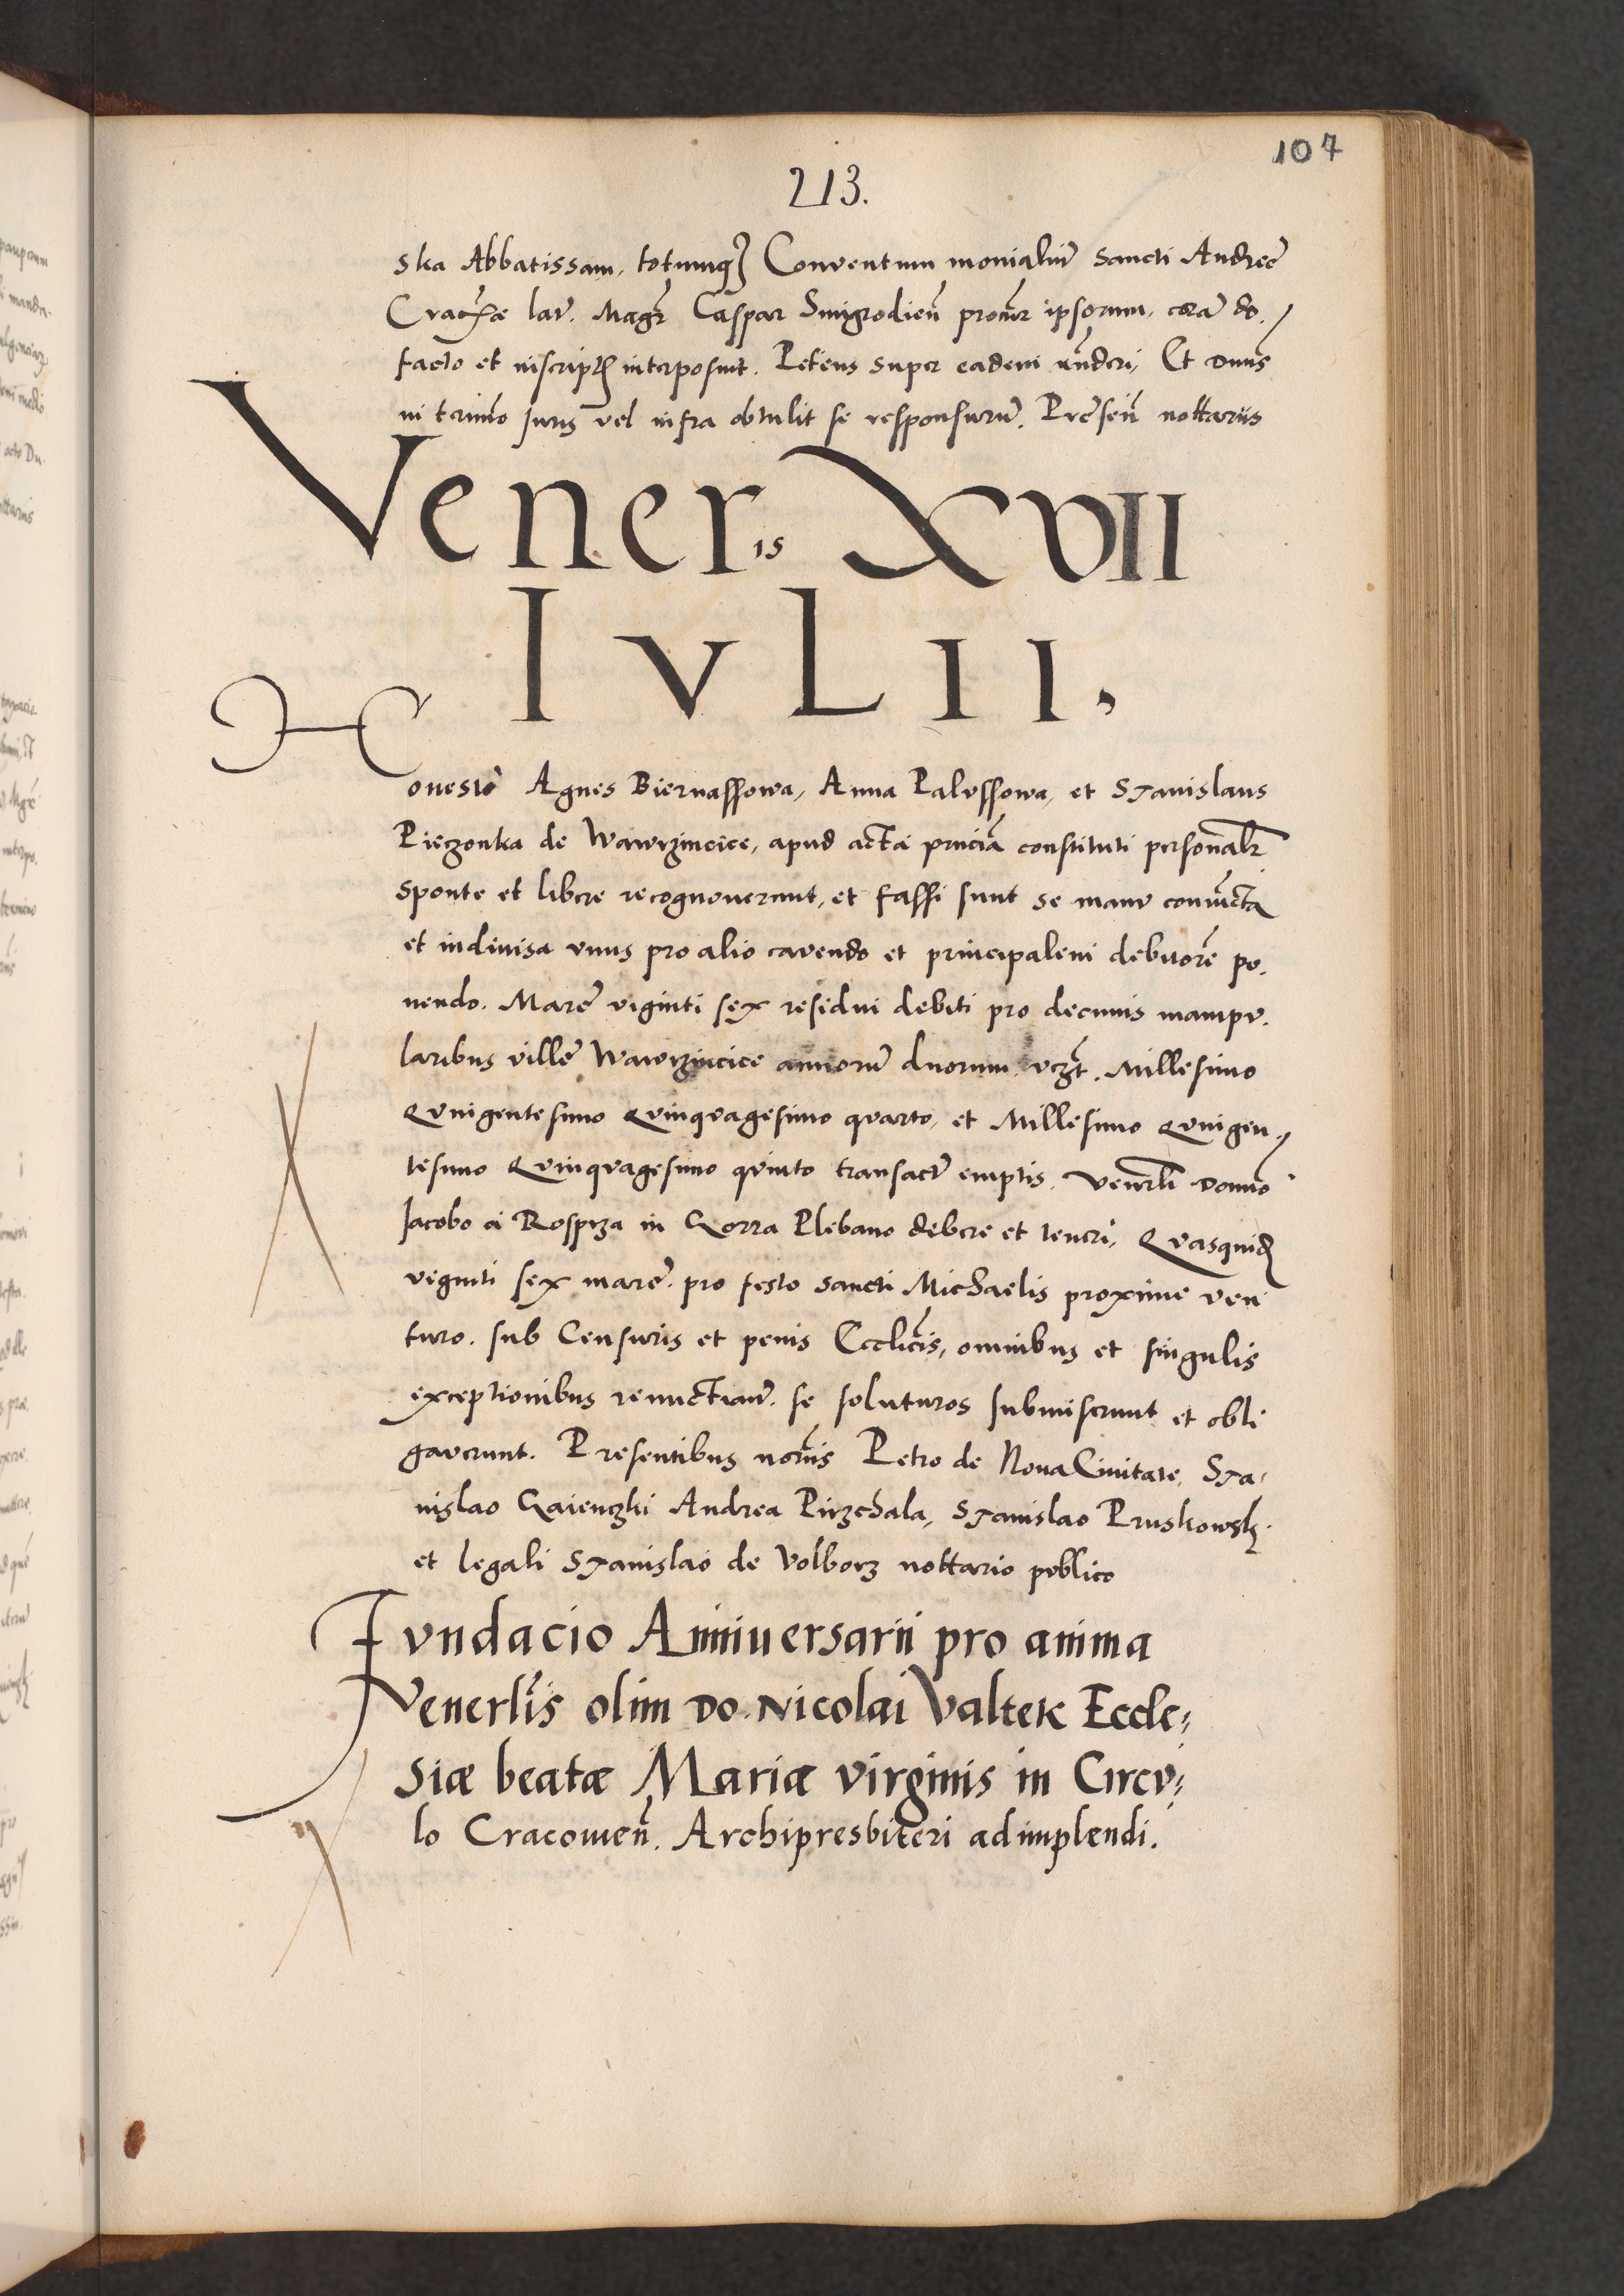 107
213.
ska Abbatissam, totumq₃ Conventum monialiũ Sancti Andreę
lat̃. Mag̃r Caspar Smigrodieñ procũr ipsorum, corã do.
facto et inscript̃ interposuit. Petens super eadem Et Dnus
in termĩo juris vel infra obtulit se responsurũ. Pręseñ nottariis
Veneris XVII
IVLII,
Honestę Agnes Biernassowa, Anna Palussowa, et Stanislaus
Pieczonka de Wawrzincice, apud acta constituti personalr̃
sponte et libere recognoverunt, et fassi sunt se manu coniuncta
et indivisa unus pro alio cavendo et principalem debitorẽ po.
nendo. Marc̃ viginti sex residui debiti pro decimis manipu.
laribus villę Wawrzincice annorũ duorum vczt̃. Millesimo
Qvingentesimo Qvinqvagesimo qvarto, et Millesimo Qvingen
tesimo Qvinqvagesimo qvinto transact̃ emptis. Venerli Domno
Jacobo a Rosprza in Gorra Plebano debere et teneri, Qvasquid̃
viginti sex marc̃. pro festo Sancti Michaelis proxime ven
turo. sub Censuris et penis Ecclicis, omnibus et singulis
exceptionibus renuctiaň. se soluturos submiserunt et obli
gaverunt. Presentibus Petro de Nova Civitate, Sta,
nislao Gaienczki Andrea Pirzchala, Stanislao Pruskowsk.
et legali Stanislao de Volborz nottario pvblico
Fvndacio Anniversarii pro anima
Venerlis olim Do. Nicolai Valtek Eccle,
siæ beatæ Mariæ virginis in Circv,
lo Cracovieñ. Archipresbiteri adimplendi.